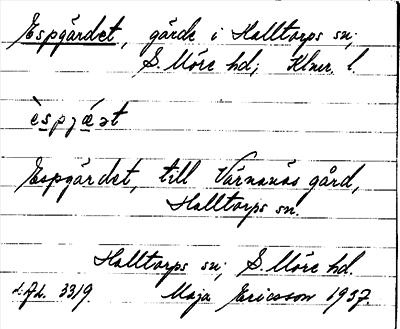 Espgärdet, gärde i Halltorps sn;
S. Möre hd; Klmr. l.
èspjæ̀ət
Espgärdet, till Värnanäs gård,
Halltorps sn.
Halltorps sn; S. Möre hd.
3319. Maja Ericsson 1937.